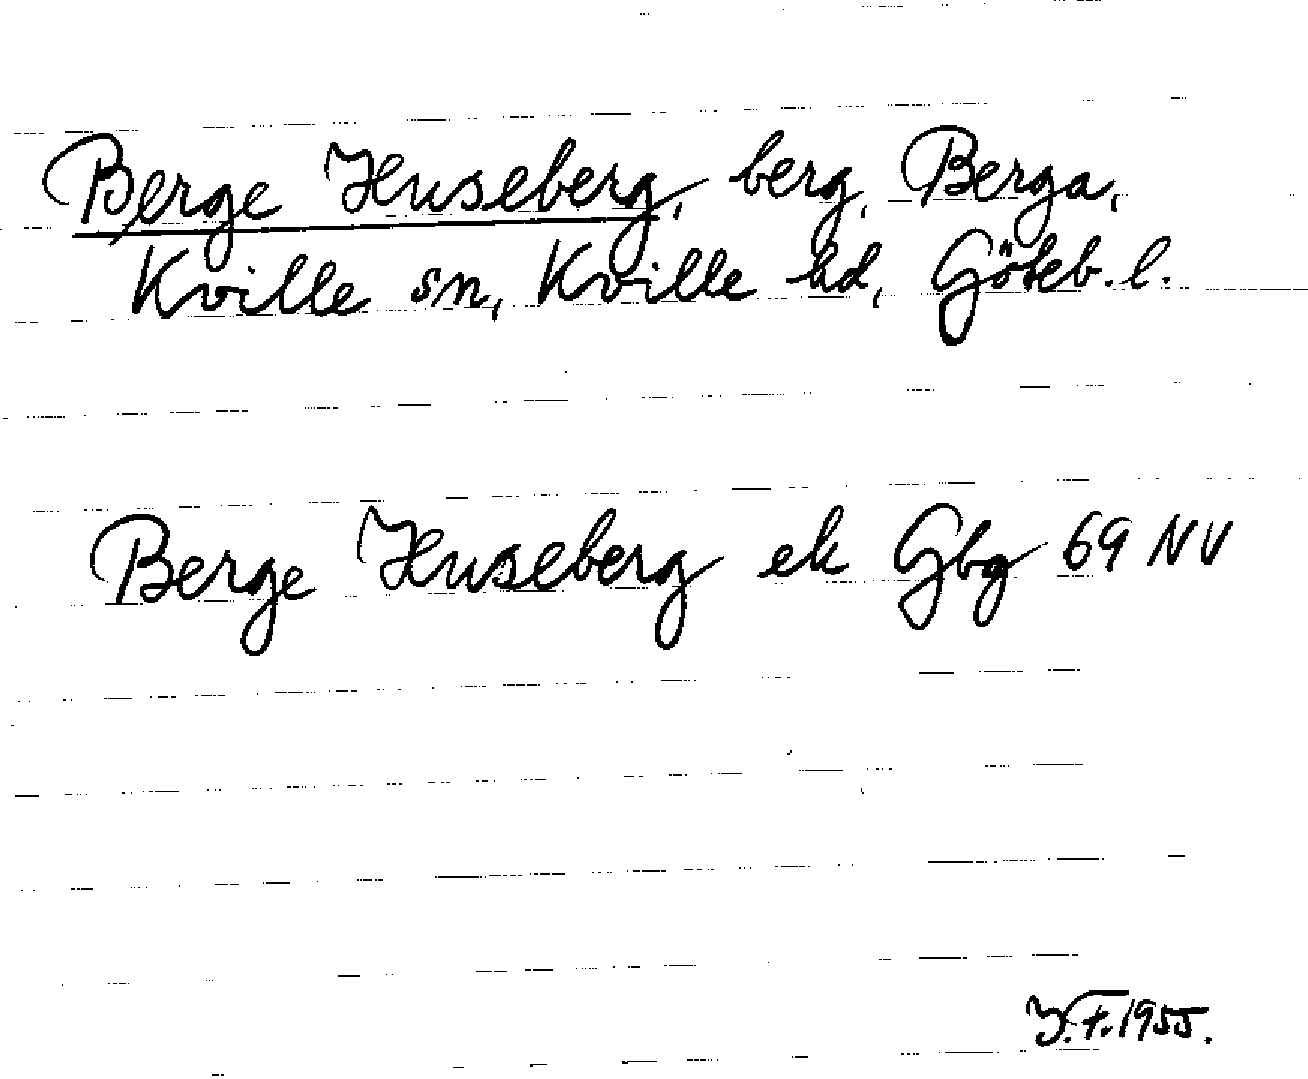 Berge Huseberg, berg, Berga,
Kville sn, Kville hd, Göteb. l.
Berge Huseberg ek Gbg 69 NV
Y.F. 1955.